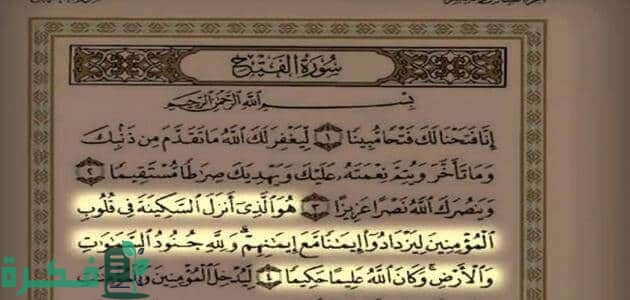 سُورَةُ الفَتْحِ
بِسْمِ اللَّهِ الرَّحْمَٰنِ الرَّحِيمِ
إِنَّا فَتَحْنَا لَكَ فَتْحًا مُّبِينًا ١ لِّيَغْفِرَ لَكَ اللَّهُ مَا تَقَدَّمَ مِن ذَنۢبِكَ
وَمَا تَأَخَّرَ وَيُتِمَّ نِعْمَتَهُۥ عَلَيْكَ وَيَهْدِيَكَ صِرَٰطًا مُّسْتَقِيمًا ٢
وَيَنصُرَكَ اللَّهُ نَصْرًا عَزِيزًا ٣ هُوَ الَّذِىٓ أَنزَلَ السَّكِينَةَ فِى قُلُوبِ
الْمُؤْمِنِينَ لِيَزْدَادُوٓا۟ إِيمَٰنًا مَّعَ إِيمَٰنِهِمْ ۗ وَلِلَّهِ جُنُودُ السَّمَٰوَٰتِ
وَالْأَرْضِ ۚ وَكَانَ اللَّهُ عَلِيمًا حَكِيمًا ٤ لِّيُدْخِلَ الْمُؤْمِنِينَ وَالْمُؤْمِنَٰتِ
فكرة